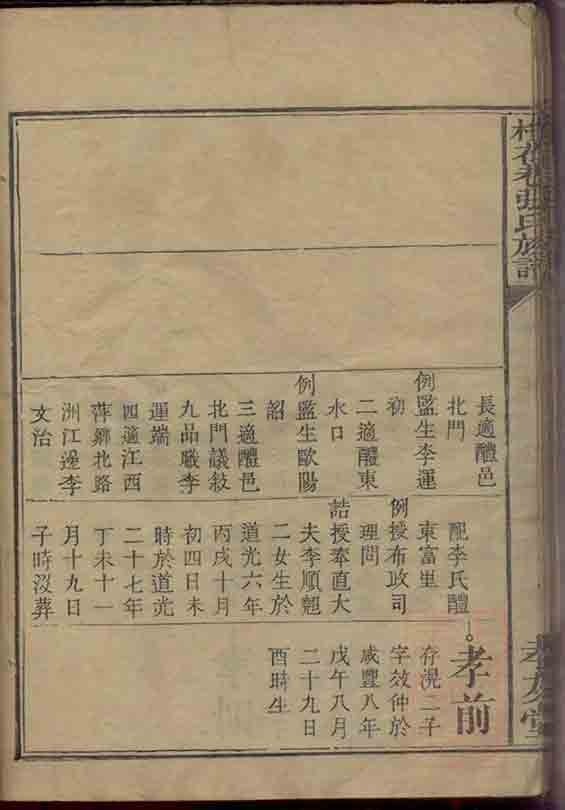 張氏族譜
長適醴邑
北門
例監生李運
初
二適醴東
水口
例監生歐陽
詔
三適醴邑
北門議敘
九品職李
運端
四適江西
萍鄉北路
洲江邊李
文治
配李氏醴
東富里
例授布政司
理問
誥授奉直大
夫李順翹
二女生於
道光六年
丙戌十月
初四日未
時於道光
二十七年
丁未十一
月十九日
子時沒葬
孝前
存滉二子
字效仲於
咸豐八年
戊午八月
二十九日
酉時生
孝友堂